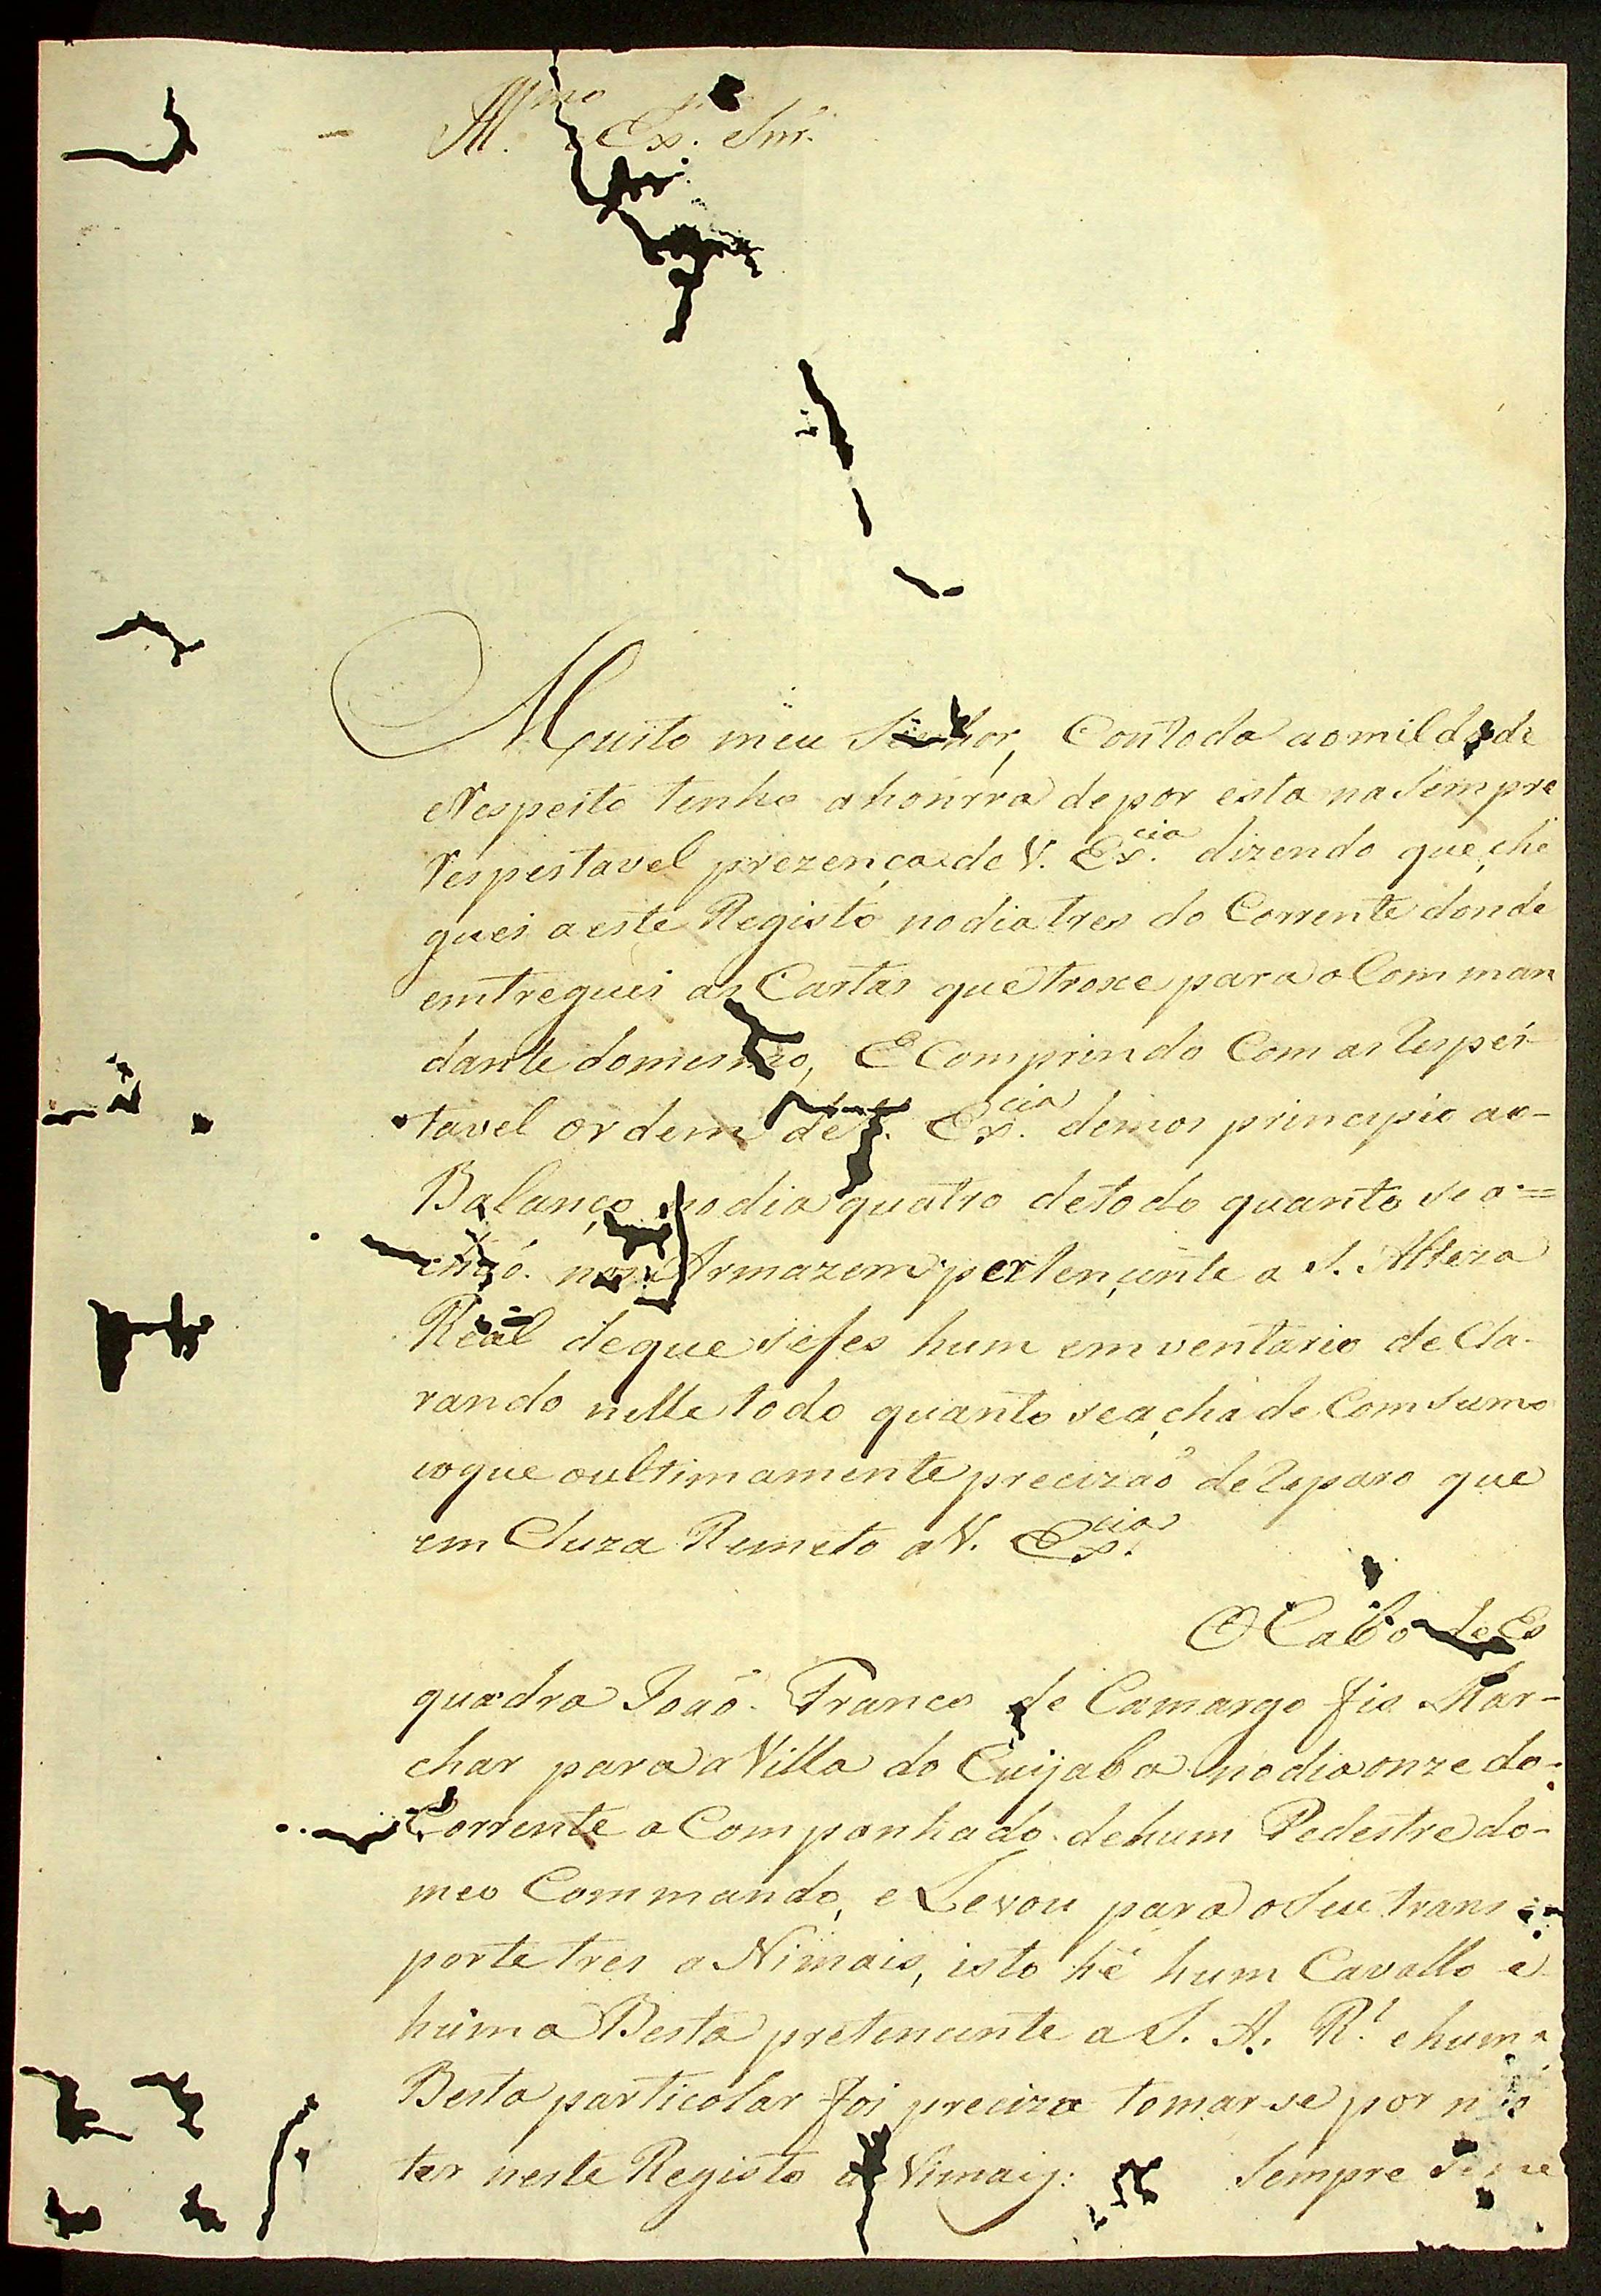 Ill.mo Ex. Snr.
Muito meu Senhor, Contoda aomildade
eRespeito tenho ahonrra depor esta naSempre
respeitavel prezença de V. Ex.cia dizendo que che
guei aeste Registo nodia tres do Corrente donde
emtreguei as Cartas quetroxe para o Comman
dante domesmo, E Comprindo Com as Respei-
tavel ordem de V. Ex.cia demos principio ao-
Balanço nodia quatro detodo quanto se a=
chaó. nos Armazem pertencente a S. Alteza
Real deque sefes hum emventario de Cla-
rando nelle todo quanto seacha de Comsumo
eoque oultimamente precizaõ de Reparo que
em Cluza Remeto aV. Ex.cia
O Cabo de Es
quadra Joaõ Franco de Camargo fis Mar-
char para a Villa do Cuijaba nodia onze do-
Corrente a Companhado dehum Pedestre do-
meo Commando, e Levou para oSeu trans
porte tres a Nimais, isto hé hum Cavallo e
huma Besta pretencente a S. A. R.l ehuma
Besta particolar foi precizo tomar-se por naõ
ter neste Registo a Nimais: Sempre